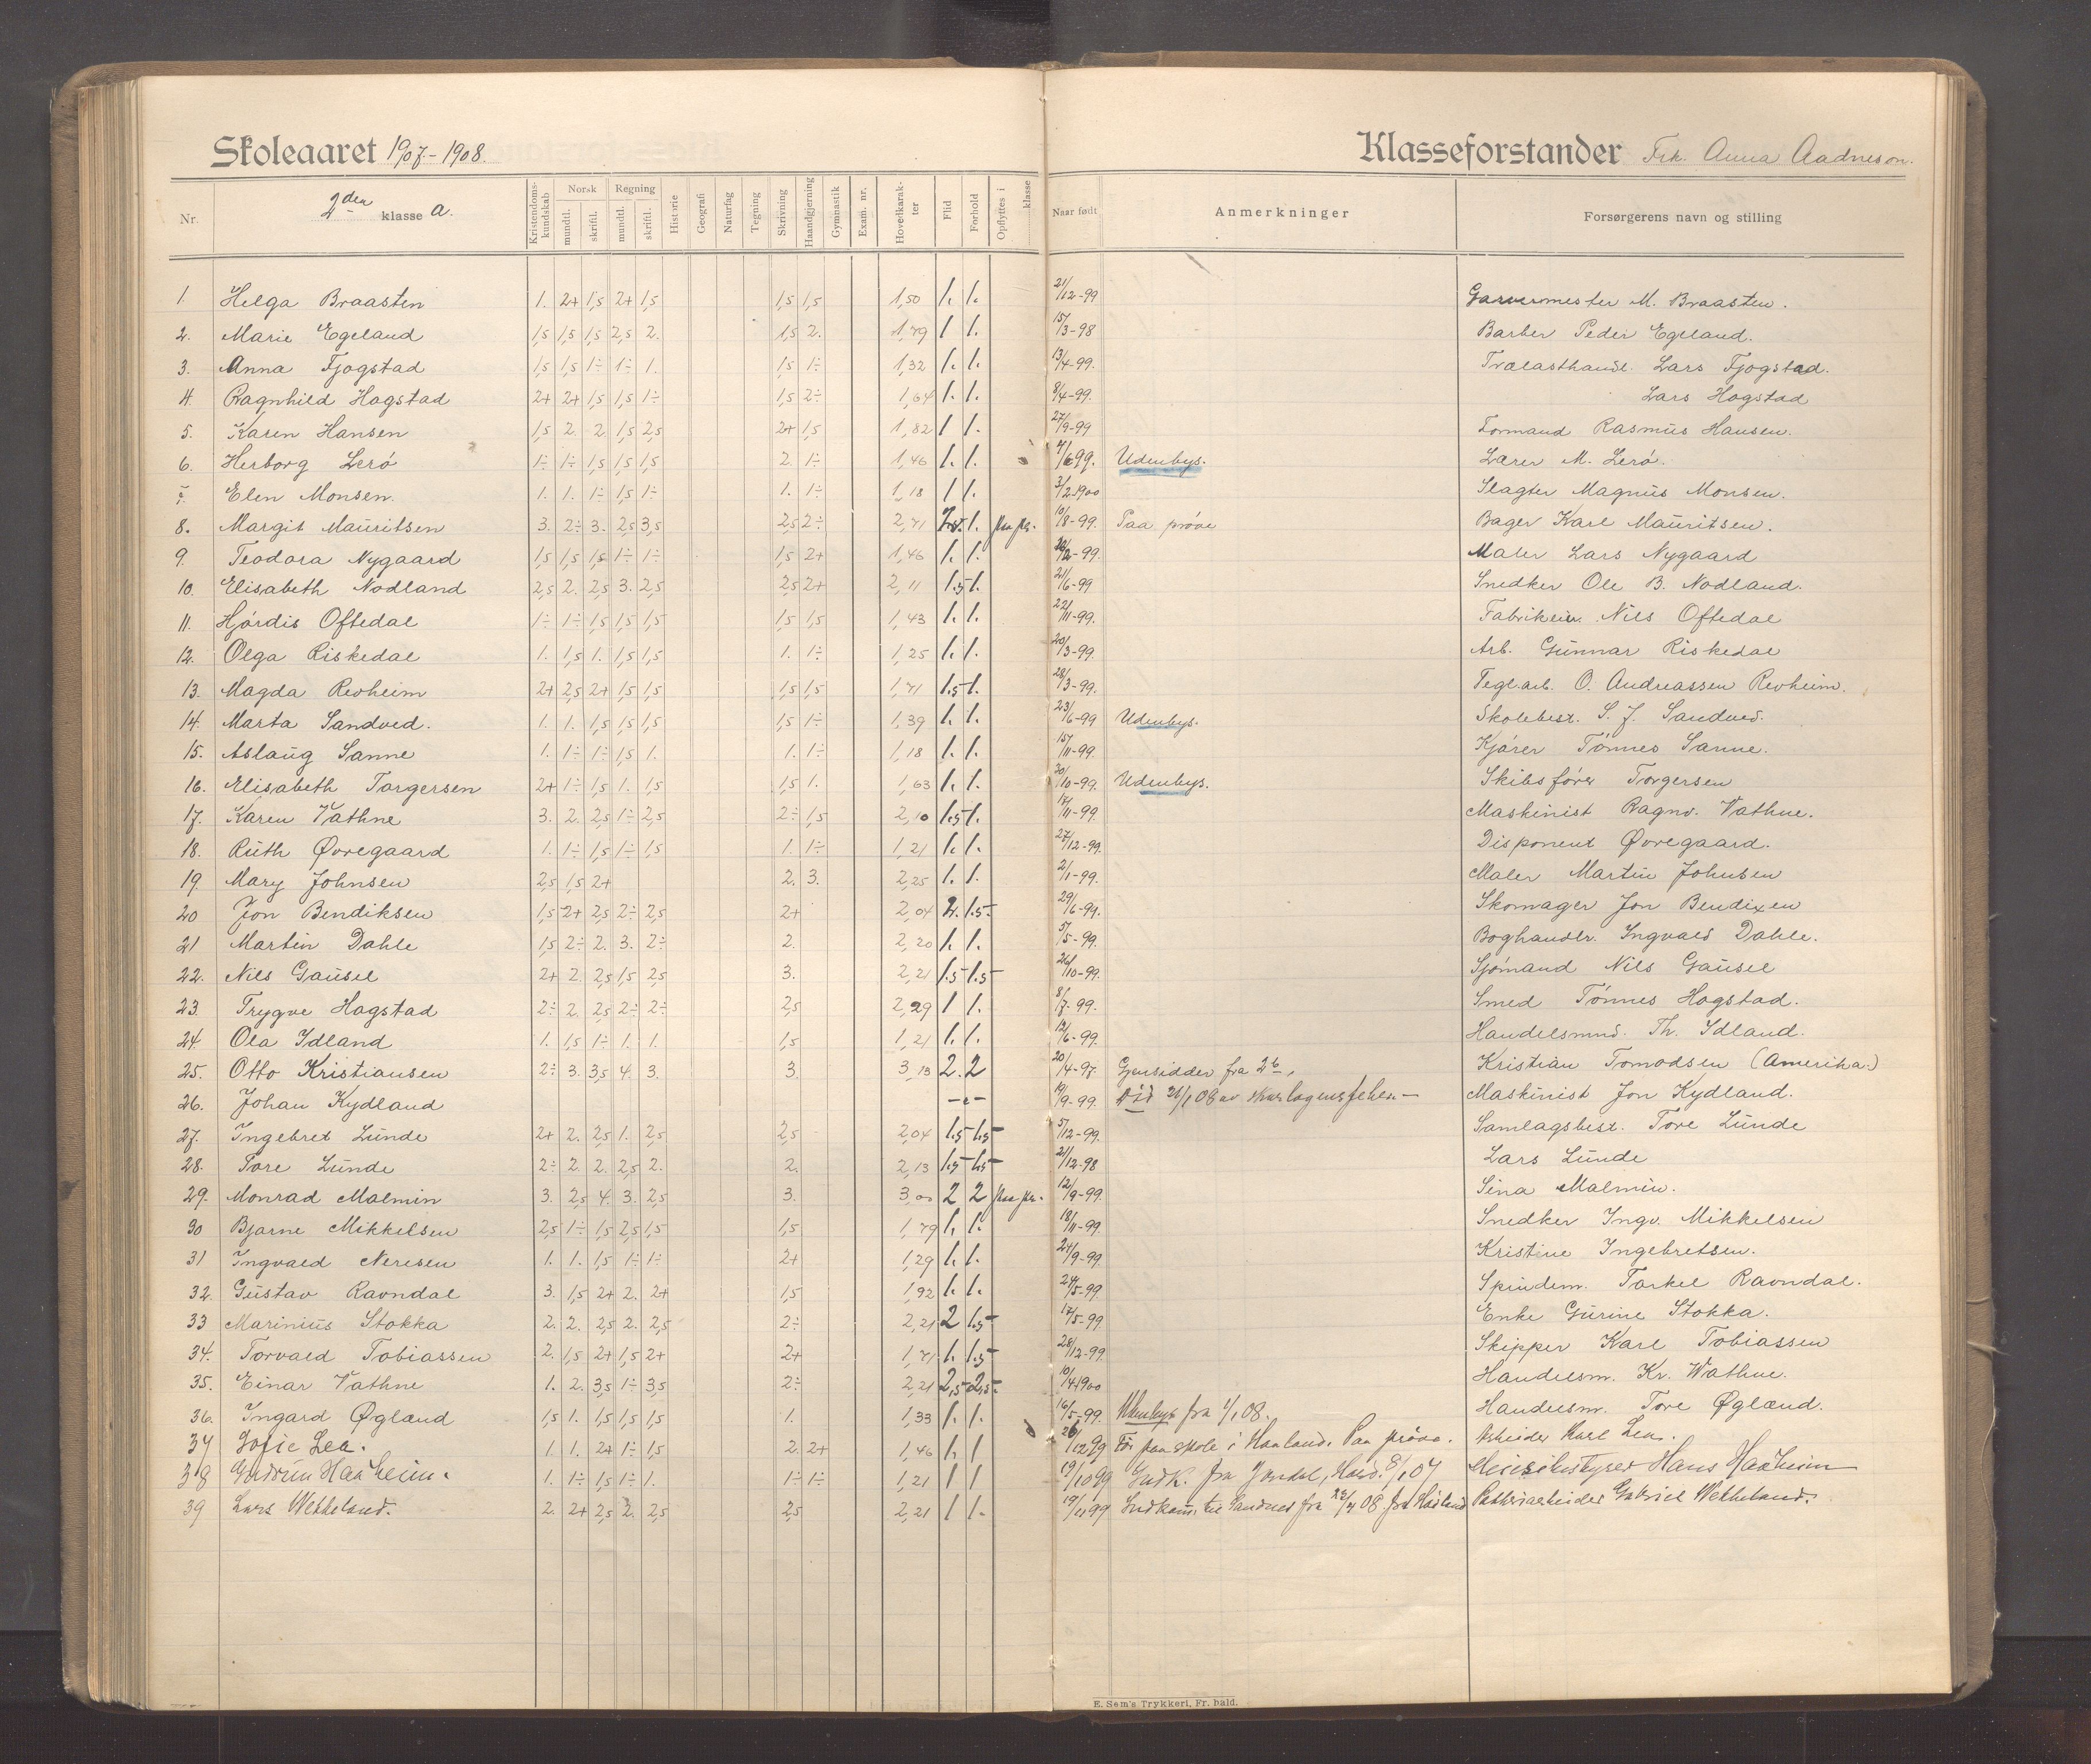 Skoleaaret 1907-1908.
Klasseforstander Frk. Anna Aadneson.
Nr. 2den klasse a. Kristendomskundskab Norsk mundtl. skriftl. Regning mundtl. skriftl. Historie Geografi Naturfag Tegning Skrivning Haandgjerning Gymnastik Exam. nr. Hovedkarakter Flid Forhold Opflyttes i klasse Naar født Anmerkninger Forsørgerens navn og stilling
1. Helga Braasten 1. 2+ 1,5 2+ 1,5 1,5 1,5 1,50 1. 1. 21/12-99 Garvermester M. Braasten.
2. Marie Egeland 1,5 1,5 1,5 2,5 2. 1,5 2. 1,79 1 1. 15/3-98 Barber Peder Egeland.
3. Anna Fjogstad 1,5 1,5 1÷ 1÷ 1. 1,5 1÷ 1,32 1. 1. 13/4-99. Trælasthandl. Lars Fjogstad.
4. Ragnhild Hogstad 2+ 2+ 1,5 1,5 1÷ 1,5 2÷ 1,64 1. 1. 8/4-99. Lars Hogstad
5. Karen Hansen 1,5 2. 2 1,5 2,5 2+ 1,5 1,82 1 1. 27/9-99 Formand Rasmus Hansen.
6. Herborg Lerø 1÷ 1÷ 1,5 1,5 1,5 2. 1÷ 1,46 1. 1. 4/6 99. Udenbys. Lærer M. Lerø.
7. Elen Monsen. 1. 1. 1÷ 1,5 1÷ 1. 1÷ 1,18 1 1. 3/2 1900 Slagter Magnus Monsen.
8. Margit Mauritsen 3. 2÷ 3. 2,5 3,5 2,5 2÷ 2,71 1. paa pr. 10/8-99. Paa prøve Bager Karl Mauritsen.
9. Teodora Nygaard 1,5 1,5 1,5 1÷ 1÷ 1,5 2+ 1,46 1. 1. 20/2-99. Maler Lars Nygaard
10. Elisabeth Nodland 2,5 2. 2,5 3. 2,5 2,5 2+ 2,11 1.5 1. 21/6-99 Snedker Ole B. Nodland.
11. Hjørdis Oftedal 1÷ 1÷ 1,5 1,5 1,5 1,5 1,5 1,43 1. 1. 22/11-99. Fabrikeier Nils Oftedal
12. Olga Riskedal 1. 1,5 1. 1,5 1,5 1. 1÷ 1,25 1. 1. 20/3-99. Arb. Gunnar Riskedal
13. Magda Revheim 2+ 2,5 2+ 1,5 1,5 1,5 1,5 1,71 1.5 1. 28/3-99. Tegl.arb. O. Andreassen Revheim.
14. Marta Sandved. 1. 1. 1,5 1,5 1,5 1,5 1÷ 1,39 1. 1. 23/6-99 Udenbys. Skolebest. S. J. Sandved.
15. Aslaug Sanne 1. 1÷ 1÷ 1,5 1. 1. 1÷ 1,18 1. 1. 15/11-99. Kjører Tønnes Sanne.
16. Elisabeth Torgersen 2+ 1÷ 1,5 1. 1,5 1,5 1. 1,63 1. 1. 20/10-99. Udenbys. Skibsfører Torgersen
17. Karen Vathne 3. 2. 2,5 1÷ 2,5 2÷ 1,5 2,10 1.5 1. 17/11-99. Maskinist Ragnv. Vathne.
18. Ruth Øvregaard 1. 1÷ 1,5 1÷ 1,5 1. 1÷ 1,21 1. 1. 27/12-99. Disponent Øvregaard.
19. Mary Johnsen 2,5 1,5 2+ 2. 3. 2,25 1. 1. 2/1-99. Maler Martin Johnsen
20 Jon Bendiksen 1,5 2+ 2,5 2÷ 2,5 2+ 2,04 2. 1.5 29/6-99. Skomager Jon Bendixen
21 Martin Dahle 1,5 2÷ 2. 3. 2÷ 2. 2,20 1. 1. 5/5-99. Boghandlr. Ingvald Dahle.
22. Nils Gausel 2+ 2. 2,5 1,5 2,5 3. 2,21 1.5 1.5 26/10-99. Sjømand Nils Gausel
23. Trygve Hogstad 2÷ 2. 2,5 2÷ 2÷ 2,5 2,29 1 1. 8/7-99. Smed Tønnes Hogstad.
24. Ola Idland 1. 1,5 1÷ 1. 1. 1,5 1,21 1. 1. 12/6-99. Handelsmnd. Th. Idland.
25. Otto Kristiansen 2÷ 3. 3,5 4. 3. 3. 3,13 2. 2 20/4-97. Gjensidder fra 2b. Kristian Tomodsen (Amerika.)
26. Johan Kydland 19/9-99. Død 21/1 08 av skarlagensfeber. Maskinist Jon Kydland.
27. Ingebret Lunde 2+ 2. 2,5 1. 2,5 2,5 2,04 1.5 1.5 5/12-99. Samlagsbest. Tore Lunde
28. Tore Lunde 2÷ 2. 2. 2,5 2. 2. 2,13 1.5 1.5 21/12-98 Lars Lunde
29. Monrad Malmin 3. 2,5 4. 3. 2,5 3. 3,00 2 2 paa pr. 12/9-99. Sina Malmin.
30 Bjarne Mikkelsen 2,5 1÷ 1,5 2,5 1,5 1,5 1,79 1. 1. 18/11-99. Snedker Ingv. Mikkelsen
31 Ingvald Neresen 1. 1. 1,5 1÷ 1÷ 2+ 1,29 1. 1. 27/9-99. Kristine Ingebretsen.
32. Gustav Ravndal 3. 1,5 2+ 2. 2+ 1,5 1,92 1. 1. 24/5-99 Spindem. Torkel Ravndal.
33 Marinius Stokka 2. 2. 2,5 2. 2,5 2÷ 2,21 2 1.5 17/5-99 Enke Gurine Stokka.
34. Torvald Tobiassen 2. 1,5 2+ 1,5 2+ 2+ 1,71 1. 1.5 28/12-99. Skipper Karl Tobiassen
35. Einar Vathne 1. 2. 3,5 1÷ 3,5 2÷ 2,21 2,5 2,5 10/4 1900 Handelsm. Kr. Wathne.
36. Ingard Øglænd 1,5 1. 1,5 1,5 1,5 1. 1,33 1. 1. 16/5-99. Udenbys fra 1/1 08. Handelsm. Tore Øglænd.
37 Sofie Lea. 1. 1. 2+ 1÷ 1,5 2. 2+ 1,46 1. 1 26/12 99 Før paa skole i Haaland. Paa prøve. Arbeider Karl Lea.
38 Gudrun Haaheim. 1. 1÷ 1,5 1÷ 1. 1÷ 1÷ 1,21 1 1 19/10 99 Indk. fra Jondal, Hard. 8/1 07 Meieribestyrer Hans Haaheim
39 Lars Wetteland. 2. 2+ 2,5 2. 2,5 2,5 2,21 1 1. 19/11 99 Indkom. til Sandnes fra 22/4 08 fra Haaland Potteriarbeider Gabriel Wetteland.
E. Sem's Trykkeri, Fr. hald.